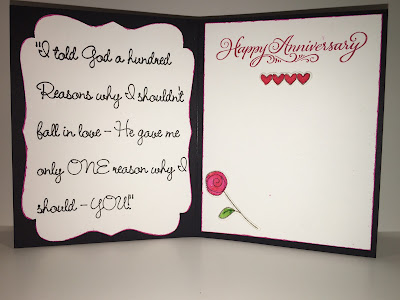 "I told God a hundred
Reasons why I shouldn't
fall in love - He gave me
only ONE reason why I
should - YOU!"
Happy Anniversary